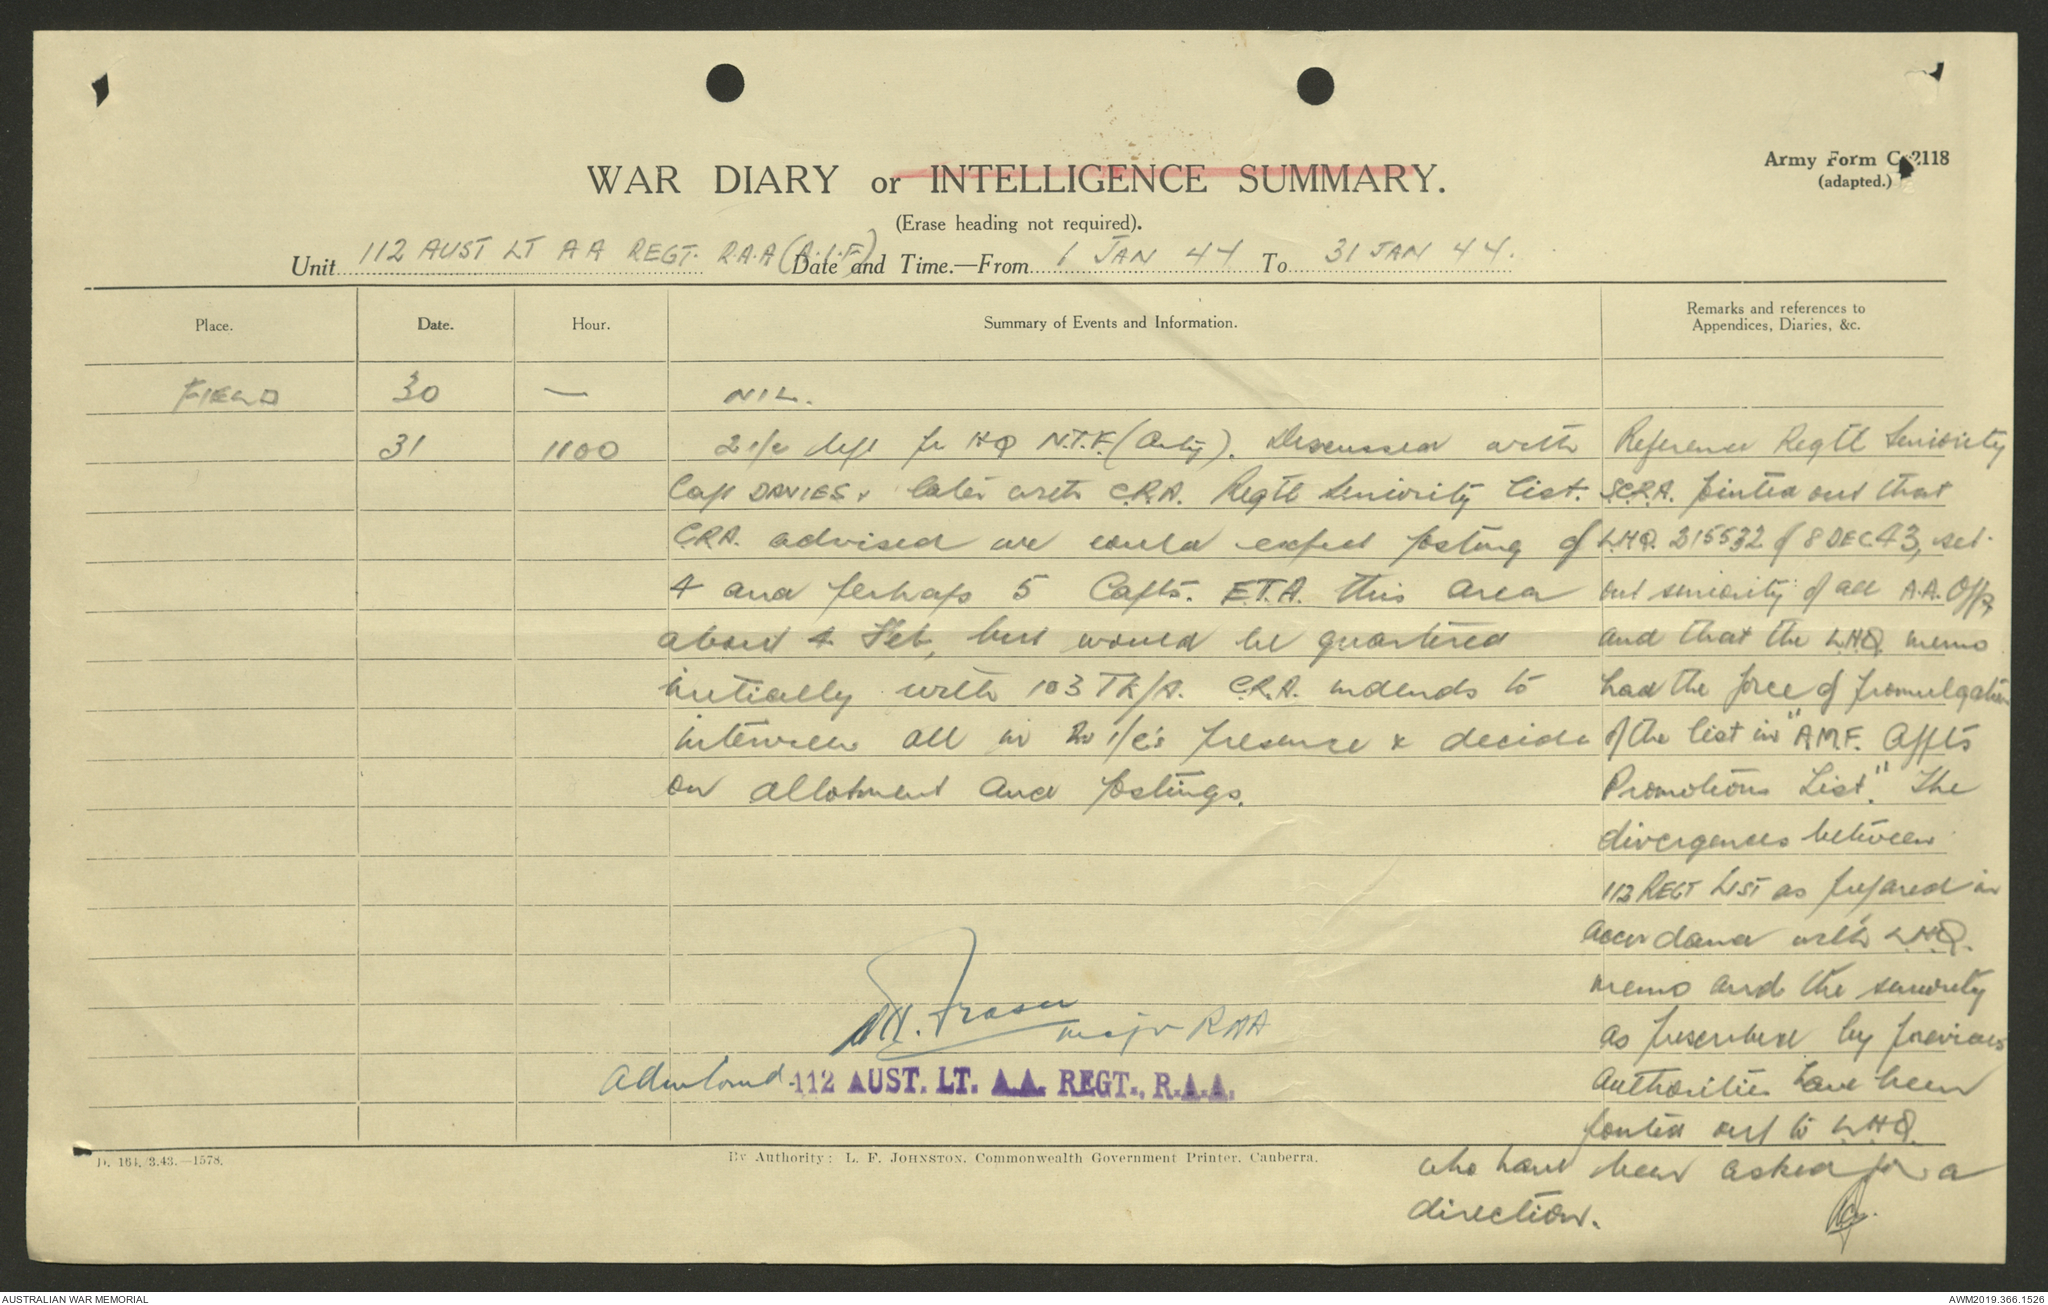 Army Form C. 2118
(adapted.)
WAR DIARY or INTELLIGENCE SUMMARY.
(Erase heading not required).
Unit 112 AUST LT AA REGT. R.A.A (A.I.F) Date and Time.—From 1 JAN 44 To 31 JAN 44.
Place. Date. Hour. Summary of Events and Information. Remarks and references to
Appendices, Diaries, &c.
FIELD 30 — NIL.
31 1100 2 i/c left for HQ N.T.F. (Arty). Discussed with
Capt DAVIES & later with C.R.A. Regtl Seniority List.
C.R.A. advised we could expect posting of
4 and perhaps 5 Capts. E.T.A. this area
about 4 Feb, but would be quartered
initially with 103 TK/A. C.R.A. intends to
interview all in 2 i/c's presence & decide
on allotment and postings.
Reference Regtl Seniority
S.C.R.A. pointed out that
L.H.Q. 215532 of 8 DEC 43, set
out seniority of all A.A. Offrs,
and that the L.H.Q. memo
had the force of promulgation
of the list in "A.M.F. Offrs
Promotions List". The
divergences between
112 REGT LIST as prepared in
accordance with L.H.Q.
memo and the seniority
as prescribed by previous
authorities have been
pointed out to L.H.Q.
who have been asked for a
direction.
Fraser
Major RAA
Adm Comd 112 AUST. LT. A.A. REGT., R.A.A.
D. 164. 3.43.—1578.
By Authority: L. F. JOHNSTON, Commonwealth Government Printer, Canberra.
AUSTRALIAN WAR MEMORIAL
AWM2019.366.1526